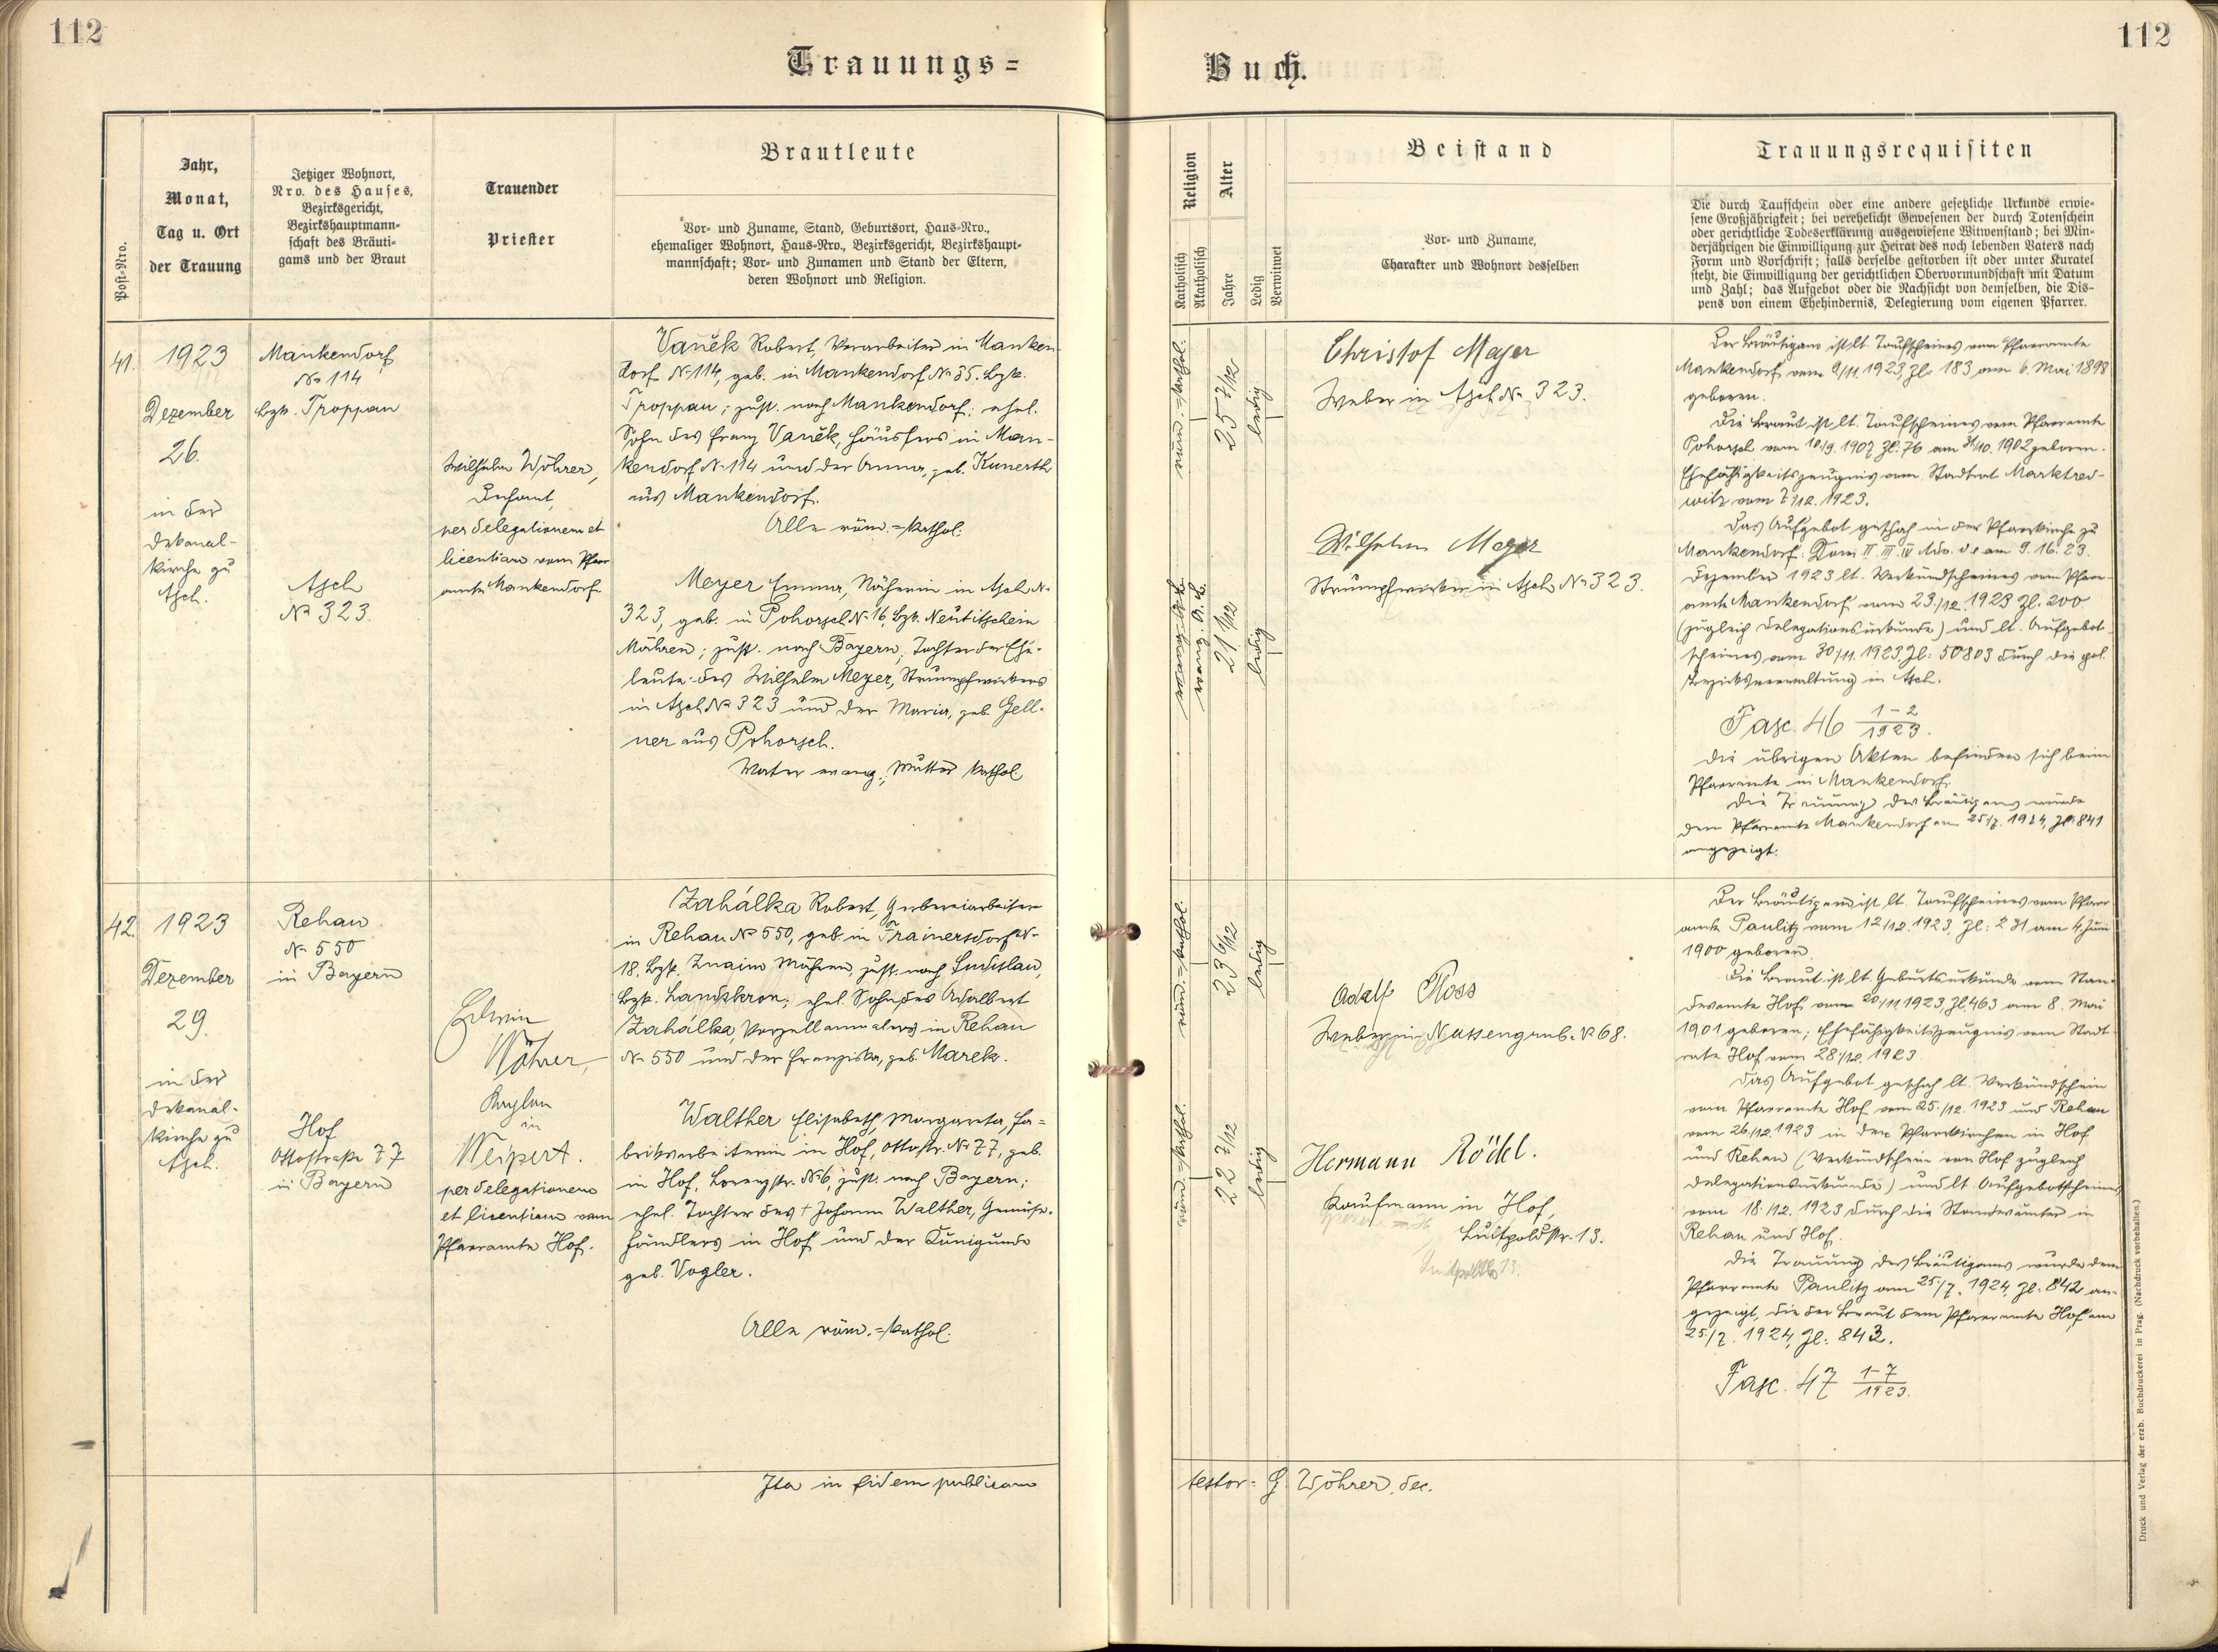 112
112
Trauungs=
Buch.
Post-Nro.
Jahr,
Monat,
Tag u. Ort
der Trauung
Jetziger Wohnort,
Nro. des Hauses,
Bezirksgericht,
Bezirkshauptmann-
schaft des Bräuti-
gams und der Braut
Trauender
Priester
Brautleute
Vor- und Zuname, Stand, Geburtsort, Haus-Nro.,
ehemaliger Wohnort, Haus-Nro., Bezirksgericht, Bezirkshaupt-
mannschaft; Vor- und Zunamen und Stand der Eltern,
deren Wohnort und Religion.
Religion
Katholisch
Akatholisch
Alter
Jahre
Ledig
Verwitwet
Beistand
Vor- und Zuname,
Charakter und Wohnort desselben
Trauungsrequisiten
Die durch Taufschein oder eine andere gesetzliche Urkunde erwie-
sene Großjährigkeit; bei verehelicht Gewesenen der durch Totenschein
oder gerichtliche Todeserklärung ausgewiesene Witwenstand; bei Min-
derjährigen die Einwilligung zur Heirat des noch lebenden Vaters nach
Form und Vorschrift; falls derselbe gestorben ist oder unter Kuratel
steht, die Einwilligung der gerichtlichen Obervormundschaft mit Datum
und Zahl; das Aufgebot oder die Nachsicht von demselben, die Dis-
pens von einem Ehehindernis, Delegierung vom eigenen Pfarrer.
41.
1923
Dezember
26.
in der
Dekanal-
kirche zu
Asch.
Mankendorf
No 114
Bzk. Troppau
Asch
No 323.
Wilhelm Wöhrer,
Dechant,
per delegationem et
licentiam vom Pfarr
amte Mankendorf
Vaněk Robert, Vorarbeiter in Manken-
dorf No 114, geb. in Mankendorf No 35. Bzk.
Troppau; zust. nach Mankendorf; ehel.
Sohn des Franz Vaněk, Häuslers in Man-
kendorf No 114 und der Anna, geb. Kunerth
aus Mankendorf.
Alle röm.=kathol.
Meyer Emma, Näherin in Asch No
323, geb. in Pohorsch No 16, Bzk. Neutitschein
Mähren; zust. nach Bayern, Tochter der Ehe-
leute: des Wilhelm Meyer, Strumpfwirkers
in Asch No 323 und der Maria, geb. Gell-
ner aus Pohorsch.
Vater evang., Mutter kathol
röm.=kathol.
25 7/12
ledig
evang. A. B.
21 1/12
ledig
Christof Mejer
Weber in Asch No 323.
Wilhelm Meyer
Strumpfwirker in Asch No 323.
Der Bräutigam ist lt. Taufscheines vom Pfarramte
Mankendorf vom 9/11. 1923, Zl. 183 am 6. Mai 1898
geboren.
Die Braut ist lt. Taufscheines vom Pfarramte
Pohorsch vom 10/9. 1907 Zl. 76 am 31/10. 1902 geboren.
Ehefähigkeitszeugnis vom Stadtrat Marktred-
witz vom 7./12. 1923.
Das Aufgebot geschah in der Pfarrkirche zu
Mankendorf: Dom II. III. IV Adv. d. e. am 9. 16. 23.
Dezember 1923 lt. Verkündscheines vom Pfarr-
amte Mankendorf vom 23./12. 1923 Zl. 200
(zugleich Delegationsurkunde) und lt. Aufgebot-
scheines vom 30/11. 1923, Zl: 50803 durch die pol.
Bezirksverwaltung in Asch.
Fasc. 46 1-2/1923.
Die übrigen Akten befinden sich beim
Pfarramte in Mankendorf.
Die Trauung des Bräutigams wurde
dem Pfarramte Mankendorf am 25/7. 1924, Zl. 841
angezeigt.
42.
1923
Dezember
29.
in der
Dekanal-
kirche zu
Asch.
Rehau
No 550
in Bayern
Hof
Ottostraße 77
in Bayern
Edwin
Wöhrer,
Kaplan
in
Weipert.
per delegationem
et licentiam vom
Pfarramte Hof.
Zahálka Robert, Gerbereiarbeiter
in Rehau No 550, geb. in Trainersdorf No
18. Bzk. Znaim Mähren, zust. nach Ludislau,
Bzk. Landskron; ehel. Sohn des Adalbert
Zahálka, Porzellanmalers in Rehau
No 550 und der Franziska, geb. Marek.
Walther Elisabeth, Margareta, Fa-
briksarbeiterin in Hof, Ottostr. No 77, geb.
in Hof, Lorenzstr. No 6, zust. nach Bayern;
ehel. Tochter des † Johann Walther, Gemüse-
händlers in Hof und der Kunigunde
geb. Vogler.
Alle röm.=kathol.
röm.=kathol.
23 6/12
ledig
röm.=kathol.
22 7/12
ledig
Adolf Ploss
Weber in Nassengrub No 68.
Hermann Rödel.
Kaufmann in Hof,
Luitpoldstr. 13.
Der Bräutigam ist lt. Taufscheines vom Pfarr
amte Paulitz vom 12/12. 1923, Zl: 231 am 4. Juni
1900 geboren.
Die Braut ist lt. Geburtsurkunde vom Stan-
desamte Hof vom 20/11. 1923, Zl. 463 am 8. Mai
1901 geboren; Ehefähigkeitszeugnis vom Stadt-
rate Hof vom 28/12. 1923.
Das Aufgebot geschah lt. Verkündschein
vom Pfarramte Hof vom 25./12. 1923 und Rehau
vom 26./12. 1923 in den Pfarrkirchen in Hof
und Rehau (Verkündschein von Hof zugleich
Delegationsurkunde) und lt. Aufgebotscheines
vom 18./12. 1923 durch die Standesämter in
Rehau und Hof.
Die Trauung des Bräutigams wurde dem
Pfarramte Paulitz am 25./7. 1924, Zl. 842 an-
gezeigt, die der Braut dem Pfarramte Hof am
25./7. 1924, Zl: 843.
Fasc. 47 1-7/1923.
Ita in fidem publicam
testor: G. Wöhrer, dec.
Druck und Verlag der erzb. Buchdruckerei in Prag. (Nachdruck vorbehalten.)